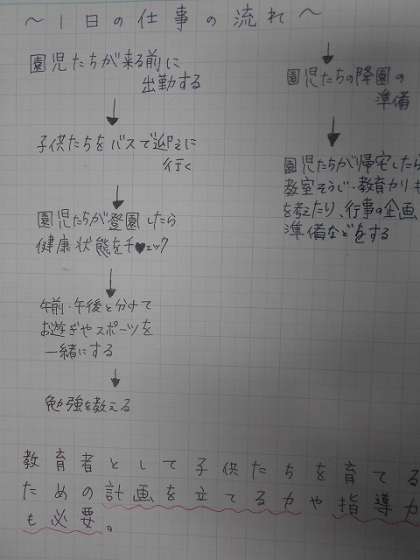 ～1日の仕事の流れ～
園児たちが来る前に
出勤する
↓
子供たちをバスで迎えに
行く
↓
園児たちが登園したら
健康状態をチェック
↓
午前・午後と分けて
お遊ぎやスポーツを
一緒にする
↓
勉強を教える
↓
園児たちの降園の
準備
↓
園児たちが帰宅したら
教室そうじ・教育カリキ
を考えたり、行事の企画、
準備などをする
教育者として子供たちを育てる
ための計画を立てる力や指導力
も必要。